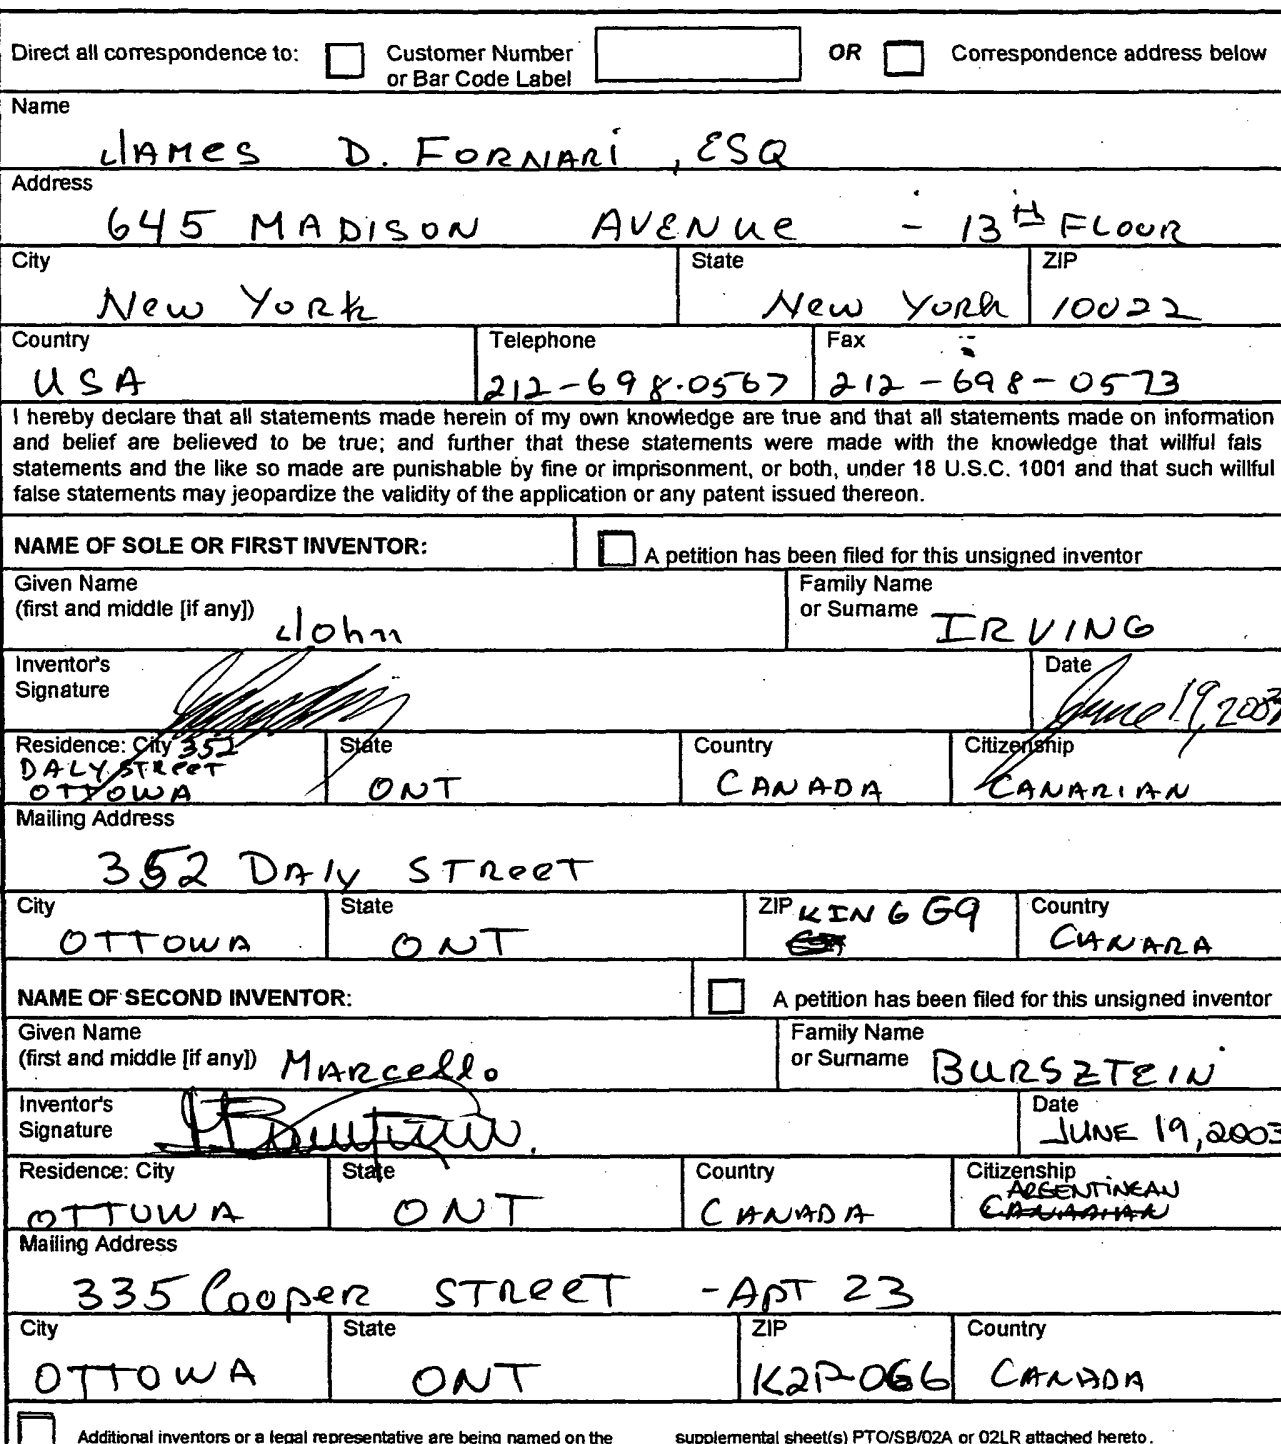 Direct all correspondence to: Customer Number or Bar Code Label OR Correspondence address below
Name
JAMES D. FORNARI, ESQ
Address
645 MADISON AVENUE - 13TH FLOOR
City State ZIP
New York New York 10022
Country Telephone Fax
USA 212-698-0567 212-698-0573
I hereby declare that all statements made herein of my own knowledge are true and that all statements made on information
and belief are believed to be true; and further that these statements were made with the knowledge that willful fals
statements and the like so made are punishable by fine or imprisonment, or both, under 18 U.S.C. 1001 and that such willful
false statements may jeopardize the validity of the application or any patent issued thereon.
NAME OF SOLE OR FIRST INVENTOR: A petition has been filed for this unsigned inventor
Given Name Family Name
(first and middle [if any]) John or Surname IRVING
Inventor's Date
Signature June 19, 2003
Residence: City 352 State Country Citizenship
DALY STREET
OTTOWA ONT CANADA CANADIAN
Mailing Address
352 DAly STReeT
City State ZIP KING G9 Country
OTTOWA ONT CANADA
NAME OF SECOND INVENTOR: A petition has been filed for this unsigned inventor
Given Name Family Name
(first and middle [if any]) MARcello or Surname BURSZTEIN
Inventor's Date
Signature JUNE 19, 2003
Residence: City State Country Citizenship
ARGENTINEAN
OTTOWA ONT CANADA CANADIAN
Mailing Address
335 Cooper STReeT - APT 23
City State ZIP Country
OTTOWA ONT K2P-0G6 CANADA
Additional inventors or a legal representative are being named on the supplemental sheet(s) PTO/SB/02A or 02LR attached hereto.